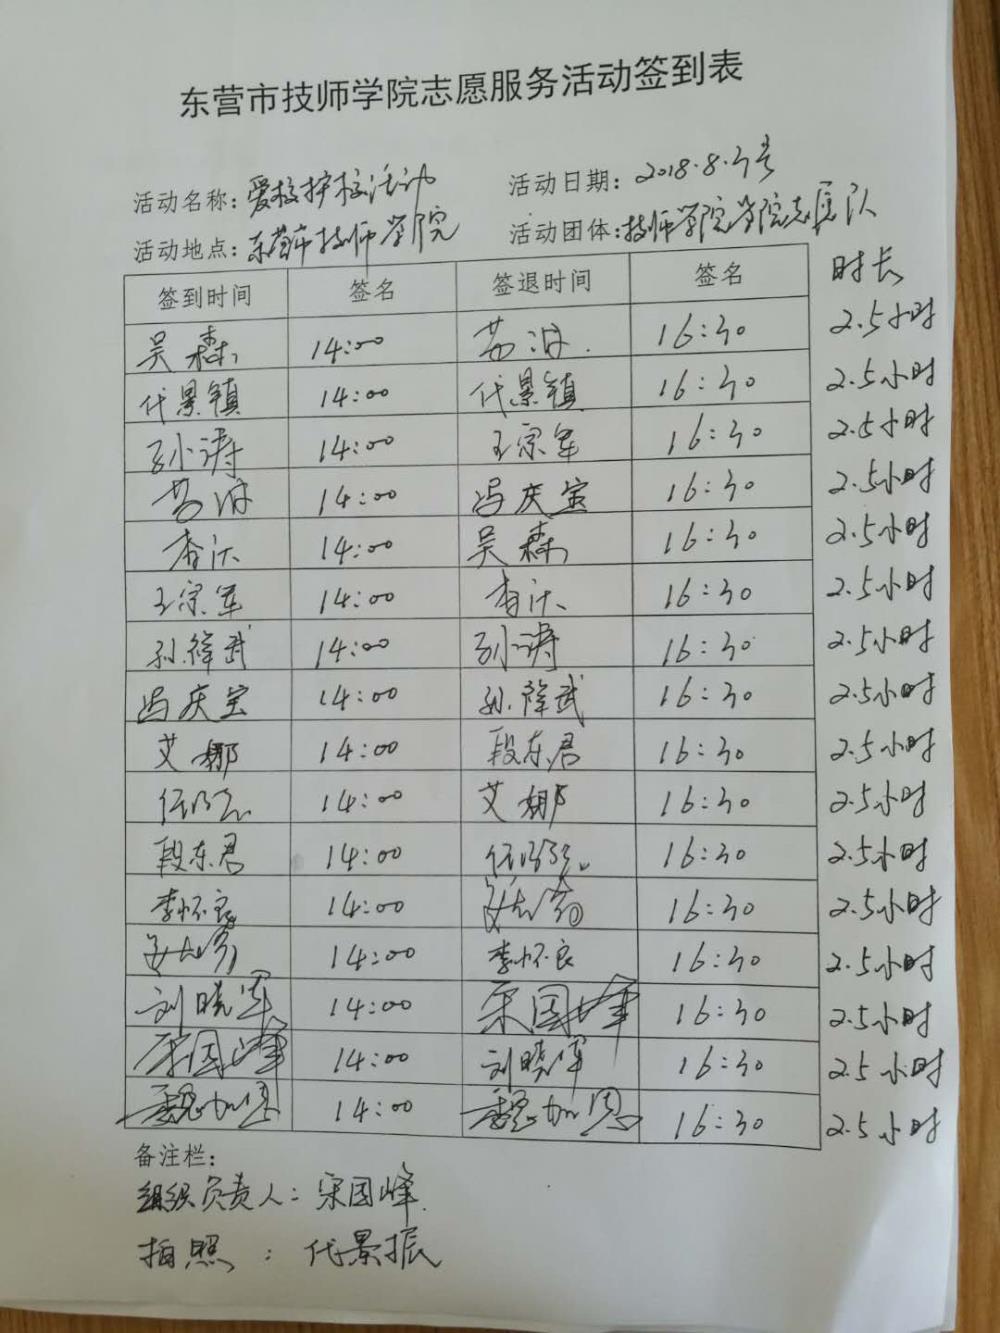 东营市技师学院志愿服务活动签到表
活动名称：爱校护校活动 活动日期：2018.8.3号
活动地点：东营市技师学院 活动团体：技师学院学院志愿队
签到时间 签名 签退时间 签名 时长
吴森 14:00 16:30 2.5小时
代景镇 14:00 代景镇 16:30 2.5小时
孙小涛 14:00 王宗军 16:30 2.5小时
14:00 冯庆宝 16:30 2.5小时
14:00 吴森 16:30 2.5小时
王宗军 14:00 16:30 2.5小时
孙祥武 14:00 孙小涛 16:30 2.5小时
冯庆宝 14:00 孙祥武 16:30 2.5小时
艾娜 14:00 段东君 16:30 2.5小时
14:00 艾娜 16:30 2.5小时
段东君 14:00 16:30 2.5小时
李怀良 14:00 16:30 2.5小时
14:00 李怀良 16:30 2.5小时
刘晓军 14:00 宋国峰 16:30 2.5小时
宋国峰 14:00 刘晓军 16:30 2.5小时
魏加恩 14:00 魏加恩 16:30 2.5小时
备注栏：
组织负责人：宋国峰
拍照：代景振